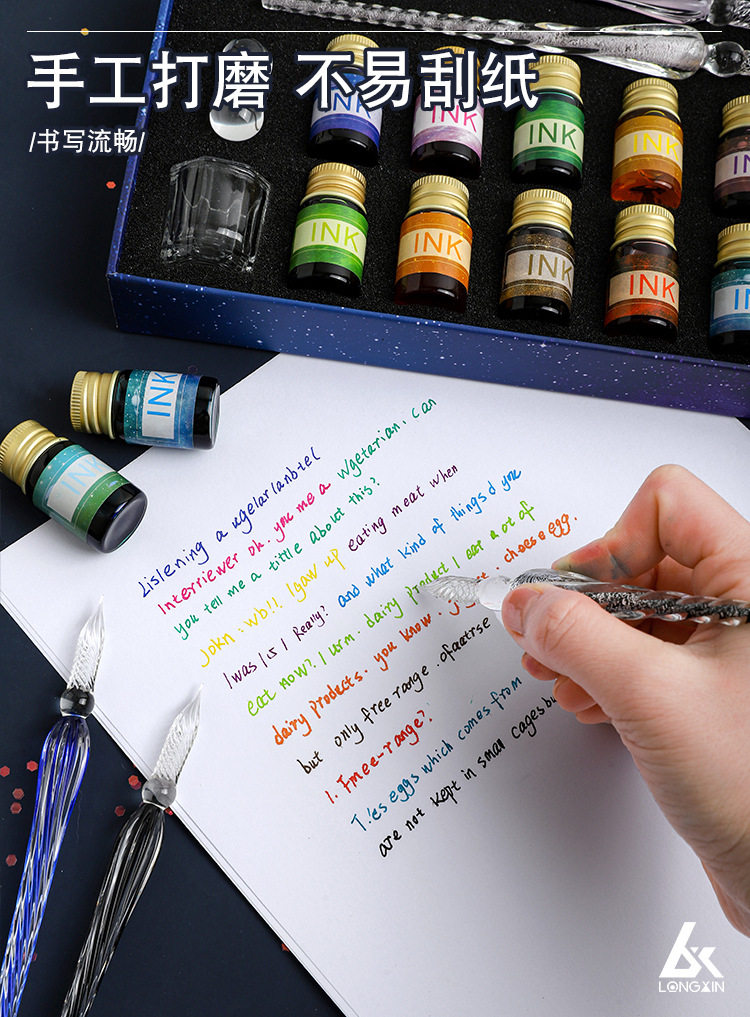 手工打磨 不易刮纸
/书写流畅/
INK
INK
INK
INK
IN
INK
INK
INK
INK
INK
INK
INK
Lislening a
Interriewer oh. you me a wgetarian. can
you tell me a tittle about this?
John: wb!! I gaw up eating meat when
I was Is I Really? and what kind of things d you
eat now?. I urm. dairy product I eat a ot of
dairy products. you know. cheese egg.
but only free range. ofaatrse
1. Fmee-range?
T.'es eggs which comes from
are not kept in small cages bu
LONGXIN